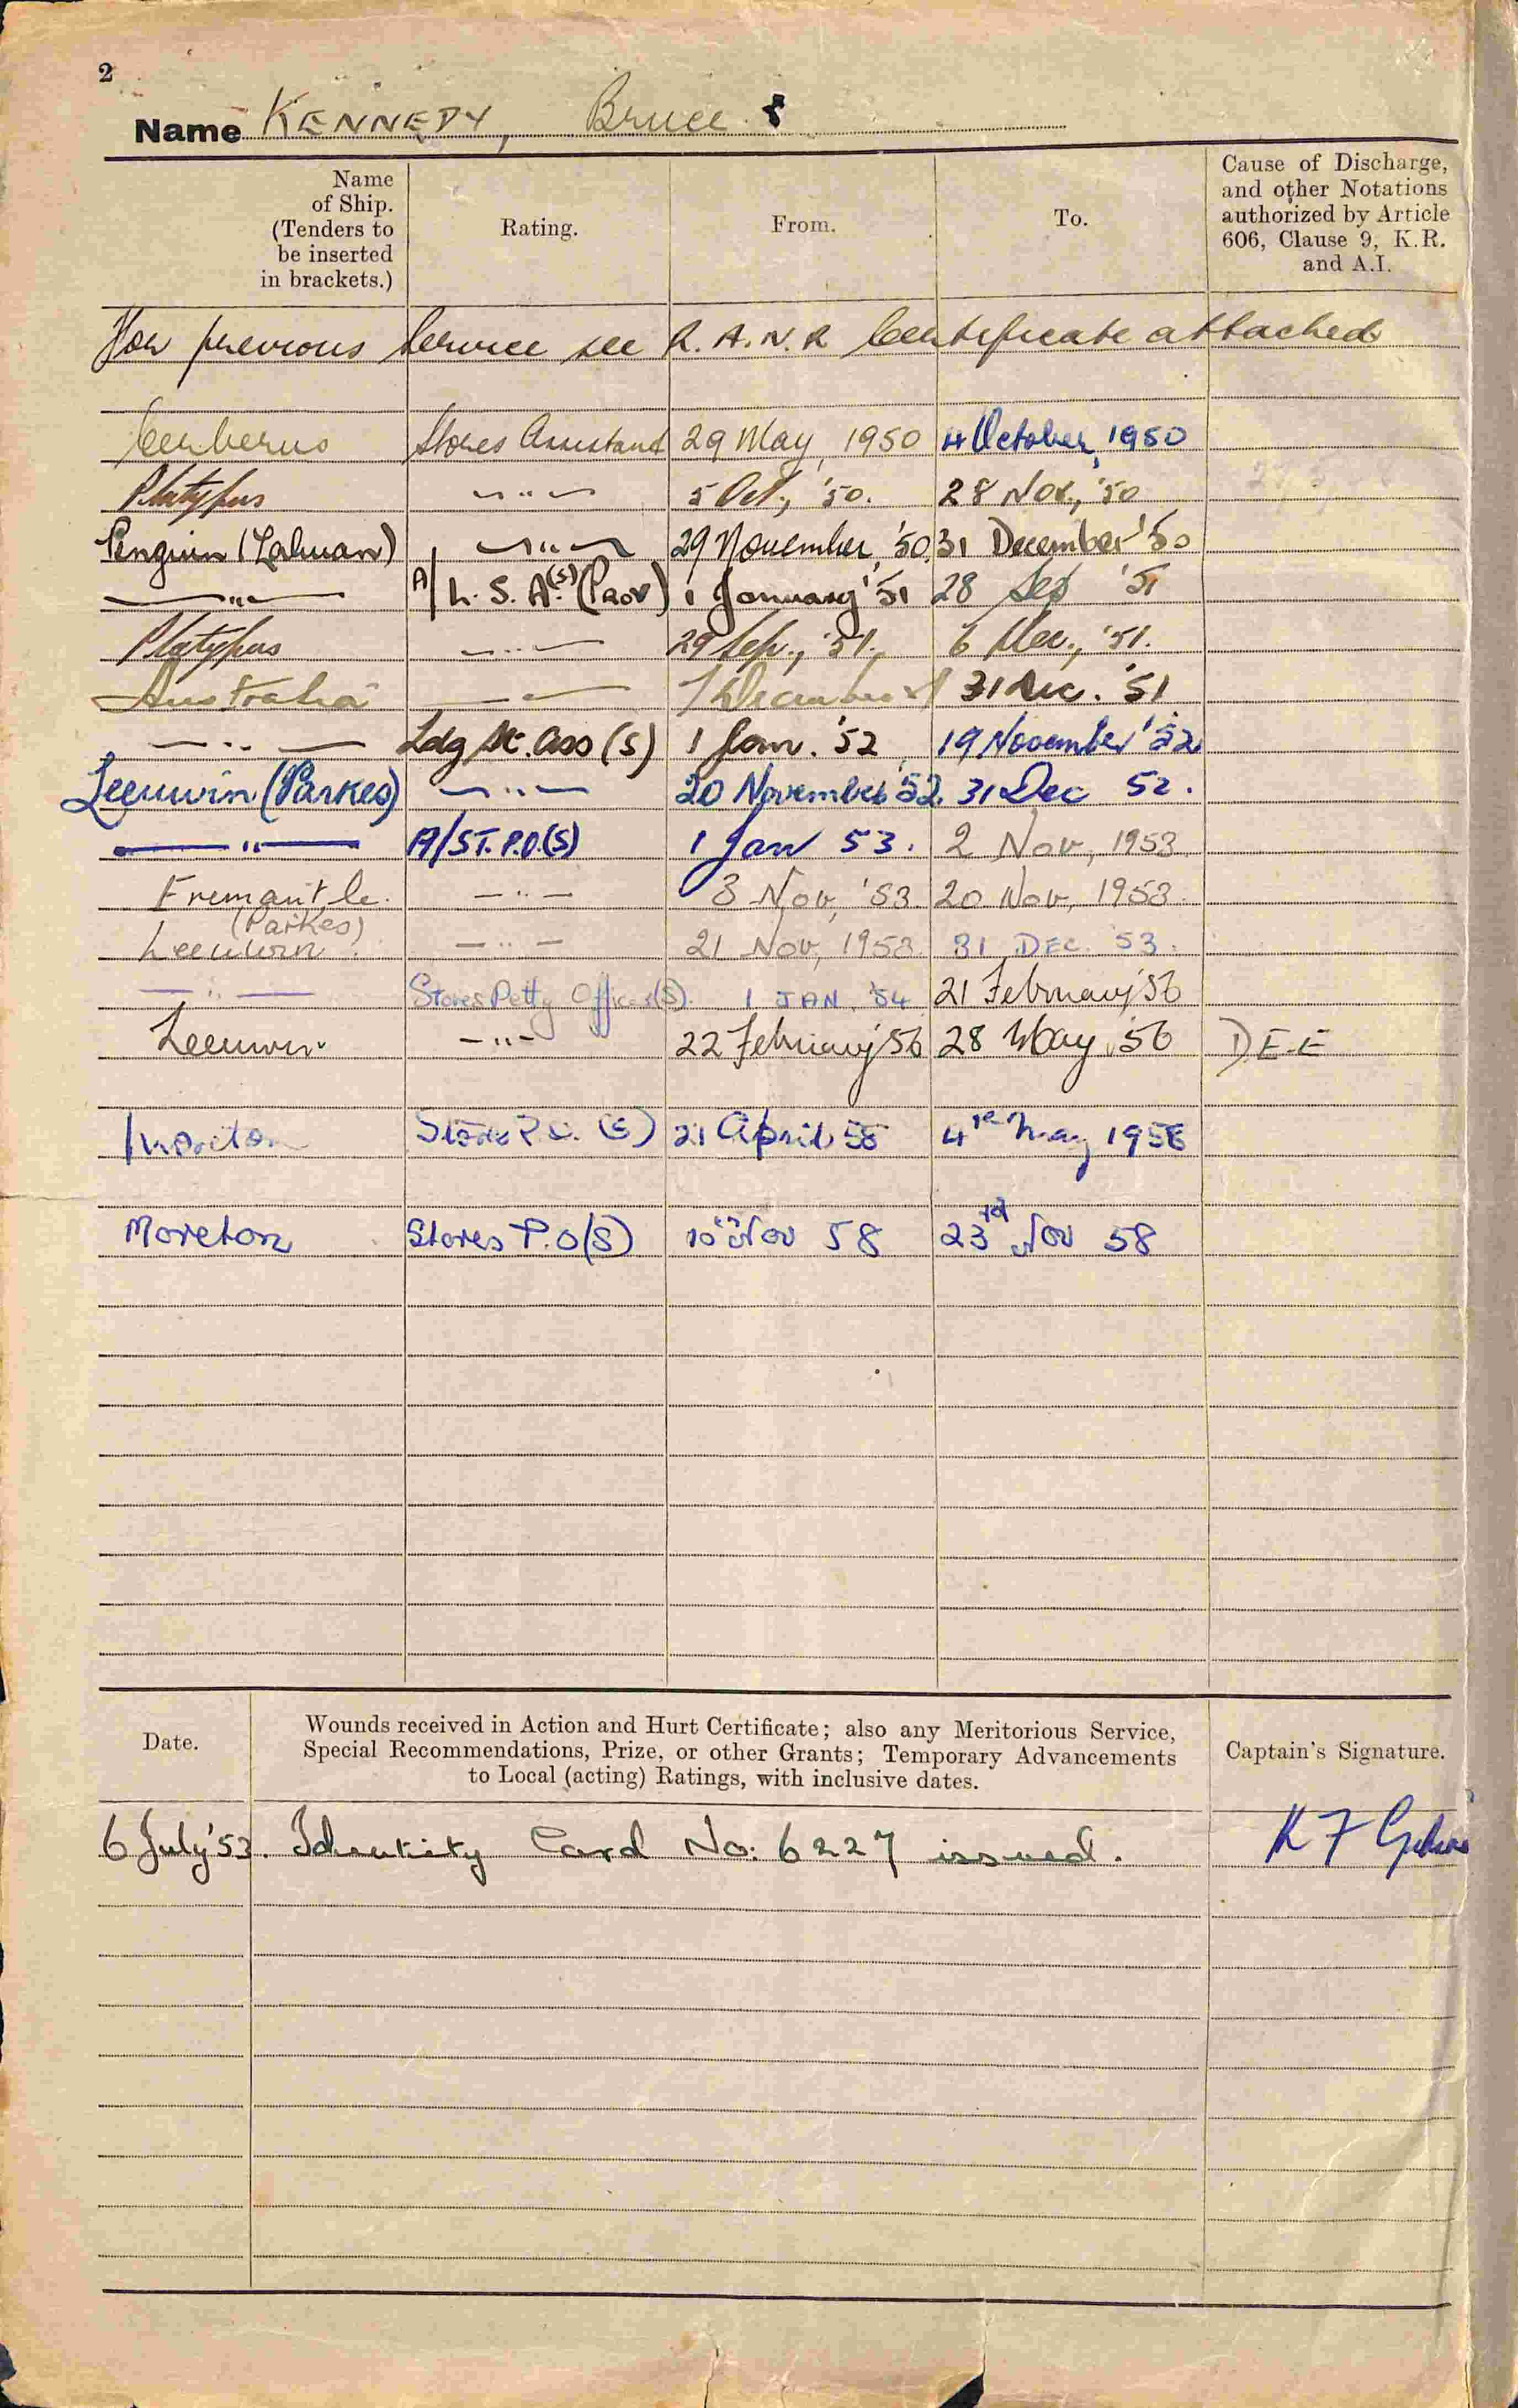 2
Name KENNEDY, Bruce
Name of Ship. (Tenders to be inserted in brackets.) Rating. From. To. Cause of Discharge, and other Notations authorized by Article 606, Clause 9, K.R. and A.I.
For previous Service see R.A.N.R Certificate attached
Cerberus Stores Assistant 29 May, 1950 4 October, 1950
Platypus —"— 5 Oct., '50. 28 Nov., '50
Penguin (Labuan) —"— 29 November, '50. 31 December '50
—"— A/L.S.A.(S) (Prov) 1 January '51 28 Sep '51
Platypus —"— 29 Sep., '51. 6 Dec., '51.
Australia —"— 7 December 51 31 Dec. '51
—"— Ldg St. Ass (S) 1 Jan. '52 19 November '52
Leeuwin (Parkes) —"— 20 November '52. 31 Dec 52.
—"— A/ST. P.O.(S) 1 Jan 53. 2 Nov, 1953
Fremantle. —"— 3 Nov, '53. 20 Nov, 1953.
Leeuwin (Parkes) —"— 21 Nov, 1953. 31 DEC. 53.
—"— Stores Petty Officer(S). 1 JAN. '54 21 February '56
Leeuwin —"— 22 February '56 28 May '56 D.E.E
Moreton Stores P.O. (S) 21 April 58 4th May 1958
Moreton Stores P.O(S) 10th Nov 58 23rd Nov 58
Date. Wounds received in Action and Hurt Certificate; also any Meritorious Service, Special Recommendations, Prize, or other Grants; Temporary Advancements to Local (acting) Ratings, with inclusive dates. Captain's Signature.
6 July '53. Identity Card No: 6227 issued. K F